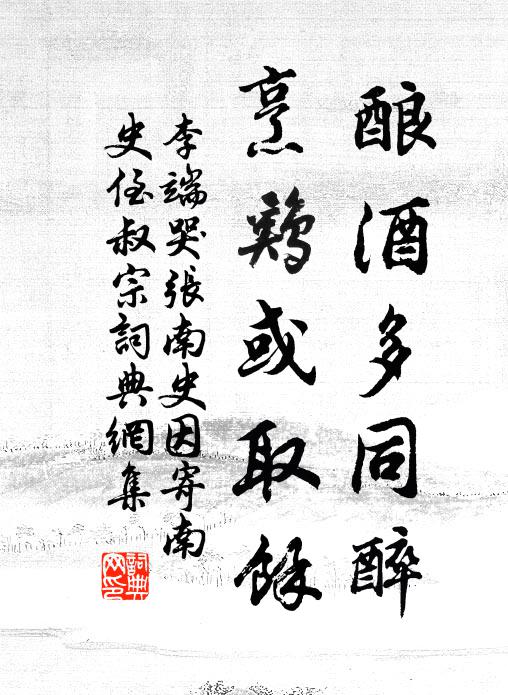 酿酒多同醉
烹鷄或取餘
李端哭張南史因寄南
史侄叔宗詞典網集
詞典
网印